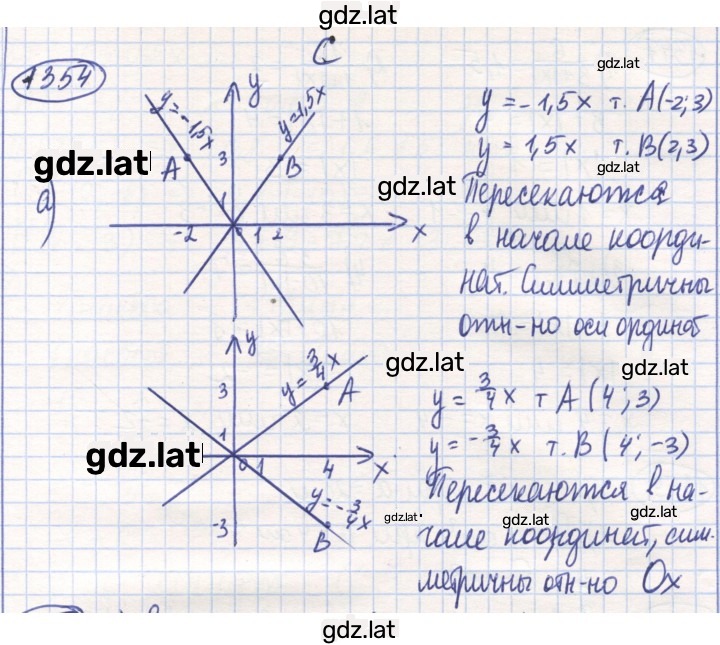 gdz.lat
С
1354
gdz.lat
y
y=-1,5x
y=1,5x
y=-1,5x т. A(-2;3)
gdz.lat
A
3
B
y=1,5x т. B(2,3)
gdz.lat
gdz.lat
Пересекаются
а)
1
-2
0
1 2
x
в начале коорди-
нат. Симметричны
отн-но оси ординат
y
y=3/4x
gdz.lat
gdz.lat
3
A
y=3/4x т A(4;3)
1
y=-3/4x т. B(4;-3)
gdz.lat
0
1
4
x
Пересекаются в на-
y=-3/4x
gdz.lat
gdz.lat
gdz.lat
-3
B
чале координат, сим-
метричны отн-но Ox
gdz.lat